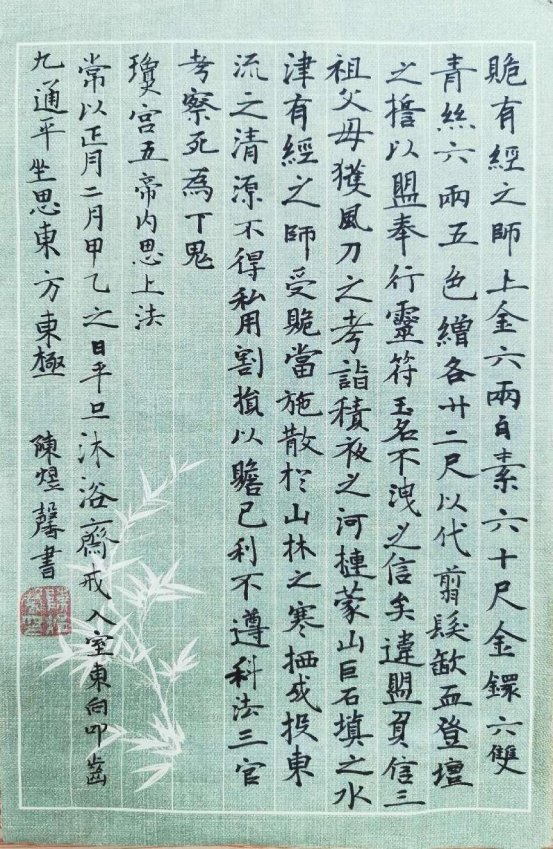 賘有經之師上金六兩白素六十尺金鐶六雙
青絲六兩五色繒各卅二尺以代翦髮歃血登壇
之擔以盟奉行靈符玉名不洩之信矣違盟負信三
祖父母獲風刀之考詣積夜之河摙蒙山巨石填之水
津有經之師受賘當施散於山林之寒栖或投東
流之清源不得私用割損以贍已利不遵科法三官
考察死為下鬼
瓊宮五帝內思上法
常以正月二月甲乙之日平旦沐浴齋戒入室東向叩齒
九通平坐思東方東極
陳煜馨書